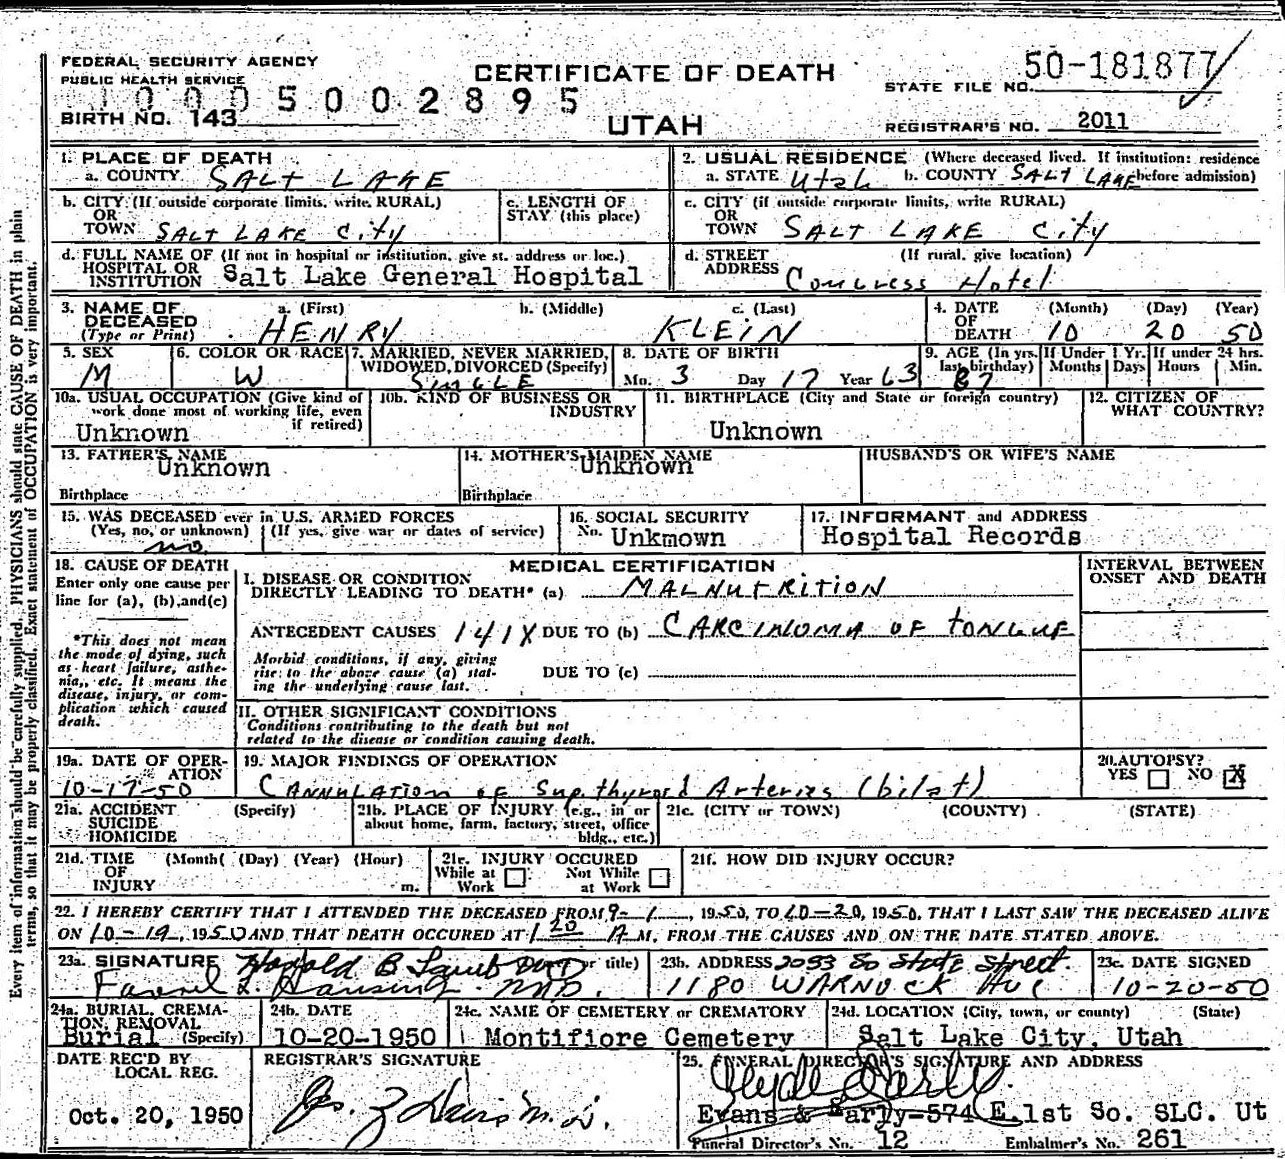 FEDERAL SECURITY AGENCY
PUBLIC HEALTH SERVICE
CERTIFICATE OF DEATH
UTAH
STATE FILE NO. 50-181877
REGISTRAR'S NO. 2011
5002895
BIRTH NO. 143
Every item of information should be carefully supplied. PHYSICIANS should state CAUSE OF DEATH in plain
terms, so that it may be properly classified. Exact statement of OCCUPATION is very important.
1. PLACE OF DEATH
a. COUNTY SALT LAKE
2. USUAL RESIDENCE (Where deceased lived. If institution: residence
a. STATE Utah b. COUNTY SALT LAKE before admission)
b. CITY (If outside corporate limits, write RURAL)
OR
TOWN SALT LAKE City
c. LENGTH OF
STAY (this place)
c. CITY (if outside corporate limits, write RURAL)
OR
TOWN SALT LAKE City
d. FULL NAME OF (If not in hospital or institution, give st. address or loc.)
HOSPITAL OR
INSTITUTION Salt Lake General Hospital
d. STREET (If rural, give location)
ADDRESS Congress Hotel
3. NAME OF
DECEASED
(Type or Print)
a. (First) HENRY
b. (Middle)
c. (Last) KLEIN
4. DATE
OF
DEATH
(Month) (Day) (Year)
10 20 50
5. SEX
M
6. COLOR OR RACE
W
7. MARRIED, NEVER MARRIED,
WIDOWED, DIVORCED (Specify)
SINGLE
8. DATE OF BIRTH
Mo. 3 Day 17 Year 63
9. AGE (In yrs.
last birthday)
87
If Under 1 Yr.
Months Days
If under 24 hrs.
Hours Min.
10a. USUAL OCCUPATION (Give kind of
work done most of working life, even
if retired)
Unknown
10b. KIND OF BUSINESS OR
INDUSTRY
11. BIRTHPLACE (City and State or foreign country)
Unknown
12. CITIZEN OF
WHAT COUNTRY?
13. FATHER'S NAME
Unknown
Birthplace
14. MOTHER'S MAIDEN NAME
Unknown
Birthplace
HUSBAND'S OR WIFE'S NAME
15. WAS DECEASED ever in U.S. ARMED FORCES
(Yes, no, or unknown) (If yes, give war or dates of service)
no
16. SOCIAL SECURITY
No. Unkmown
17. INFORMANT and ADDRESS
Hospital Records
18. CAUSE OF DEATH
Enter only one cause per
line for (a), (b), and (c)
*This does not mean
the mode of dying, such
as heart failure, asthe-
nia, etc. It means the
disease, injury, or com-
plication which caused
death.
MEDICAL CERTIFICATION
I. DISEASE OR CONDITION
DIRECTLY LEADING TO DEATH* (a) MALNUTRITION
ANTECEDENT CAUSES 141X DUE TO (b) CARCINOMA OF TONGUE
Morbid conditions, if any, giving
rise to the above cause (a) stat-
ing the underlying cause last.
DUE TO (c)
II. OTHER SIGNIFICANT CONDITIONS
Conditions contributing to the death but not
related to the disease or condition causing death.
INTERVAL BETWEEN
ONSET AND DEATH
19a. DATE OF OPER-
ATION
10-17-50
19. MAJOR FINDINGS OF OPERATION
CANNULATION of Sup. thyroid Arteries (bilat)
20. AUTOPSY?
YES NO X
21a. ACCIDENT (Specify)
SUICIDE
HOMICIDE
21b. PLACE OF INJURY (e.g., in or
about home, farm, factory, street, office
bldg., etc.)
21c. (CITY or TOWN) (COUNTY) (STATE)
21d. TIME (Month( (Day) (Year) (Hour)
OF
INJURY m.
21e. INJURY OCCURED
While at Work
Not While at Work
21f. HOW DID INJURY OCCUR?
22. I HEREBY CERTIFY THAT I ATTENDED THE DECEASED FROM 9-1, 1950, TO 10-20, 1950, THAT I LAST SAW THE DECEASED ALIVE
ON 10-19, 1950 AND THAT DEATH OCCURED AT 1 20 A M. FROM THE CAUSES AND ON THE DATE STATED ABOVE.
23a. SIGNATURE Harold B (or title)
M.D.
23b. ADDRESS 2033 So State Street
1180 WARNOCK Ave
23c. DATE SIGNED
10-20-50
24a. BURIAL, CREMA-
TION, REMOVAL
Burial (Specify)
24b. DATE
10-20-1950
24c. NAME OF CEMETERY or CREMATORY
Montifiore Cemetery
24d. LOCATION (City, town, or county) (State)
Salt Lake City, Utah
DATE REC'D BY
LOCAL REG.
Oct. 20, 1950
REGISTRAR'S SIGNATURE
M.D.
25. FUNERAL DIRECTOR'S SIGNATURE AND ADDRESS
Evans & Early-574 E.1st So. SLC. Ut
Funeral Director's No. 12 Embalmer's No. 261